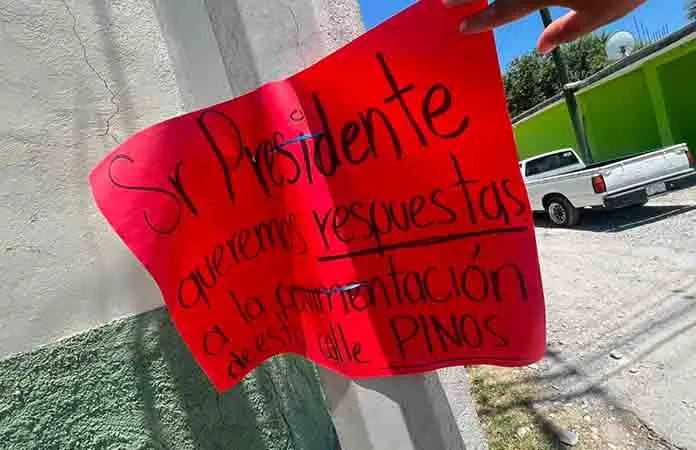 Sr Presidente
queremos respuestas
a la pavimentación
de esta calle PINOS